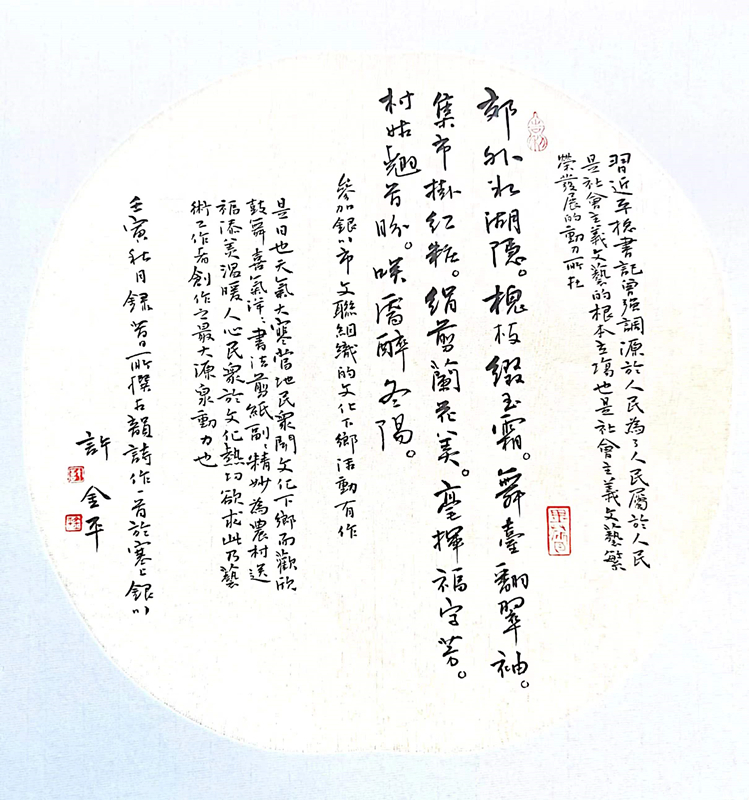 習近平總書記曾強調源於人民為了人民屬於人民
是社會主義文藝的根本立場也是社會主義文藝繁
榮發展的動力所在
郊外冰湖隱。槐枝綴玉霜。舞臺翻翠袖。
集市掛紅粧。絹剪蘭花美。毫揮福字芳。
村姑翹首盼。咲靨醉冬陽。
參加銀川市文聯組織的文化下鄉活動有作
是日也天氣大寒當地民衆聞文化下鄉而歡欣
鼓舞喜氣洋洋書法剪紙副副精妙為農村送
福添美温暖人心民衆於文化熱切欲求此乃藝
術工作者創作之最大源泉動力也
壬寅秋月録昔日所撰古韻詩作一首於寒上銀川
許金平